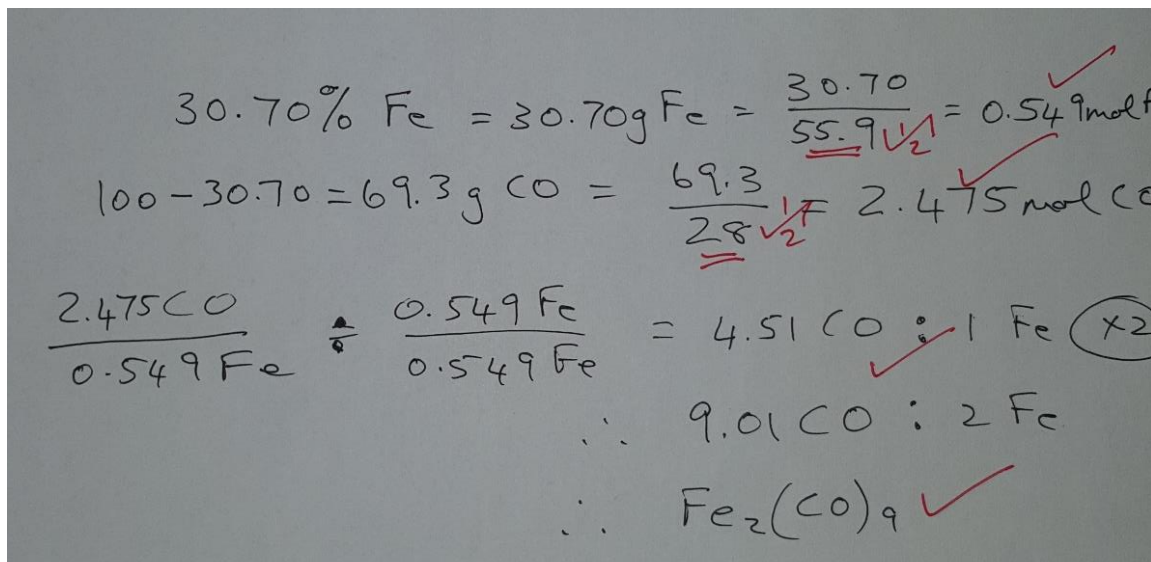 30.70% Fe = 30.70g Fe = 30.70/55.9 ✓½ = 0.549mol F ✓
100-30.70 = 69.3g CO = 69.3/28 ✓½ = 2.475 mol CO ✓
2.475CO/0.549Fe : 0.549Fe/0.549Fe = 4.51 CO : 1 Fe (x2) ✓
∴ 9.01 CO : 2 Fe
∴ Fe₂(CO)₉ ✓